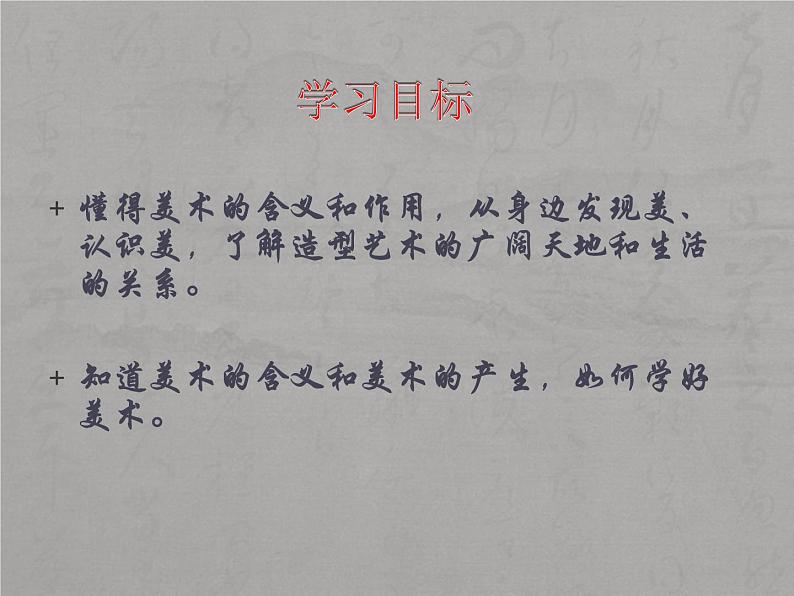 学习目标
+ 懂得美术的含义和作用，从身边发现美、
认识美，了解造型艺术的广阔天地和生活
的关系。
+ 知道美术的含义和美术的产生，如何学好
美术。